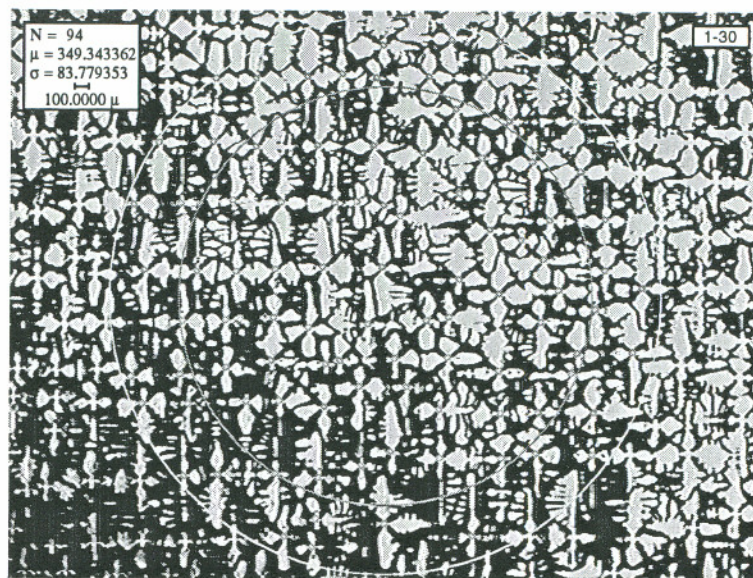 N = 94
μ = 349.343362
σ = 83.779353
100.0000 μ
1-30